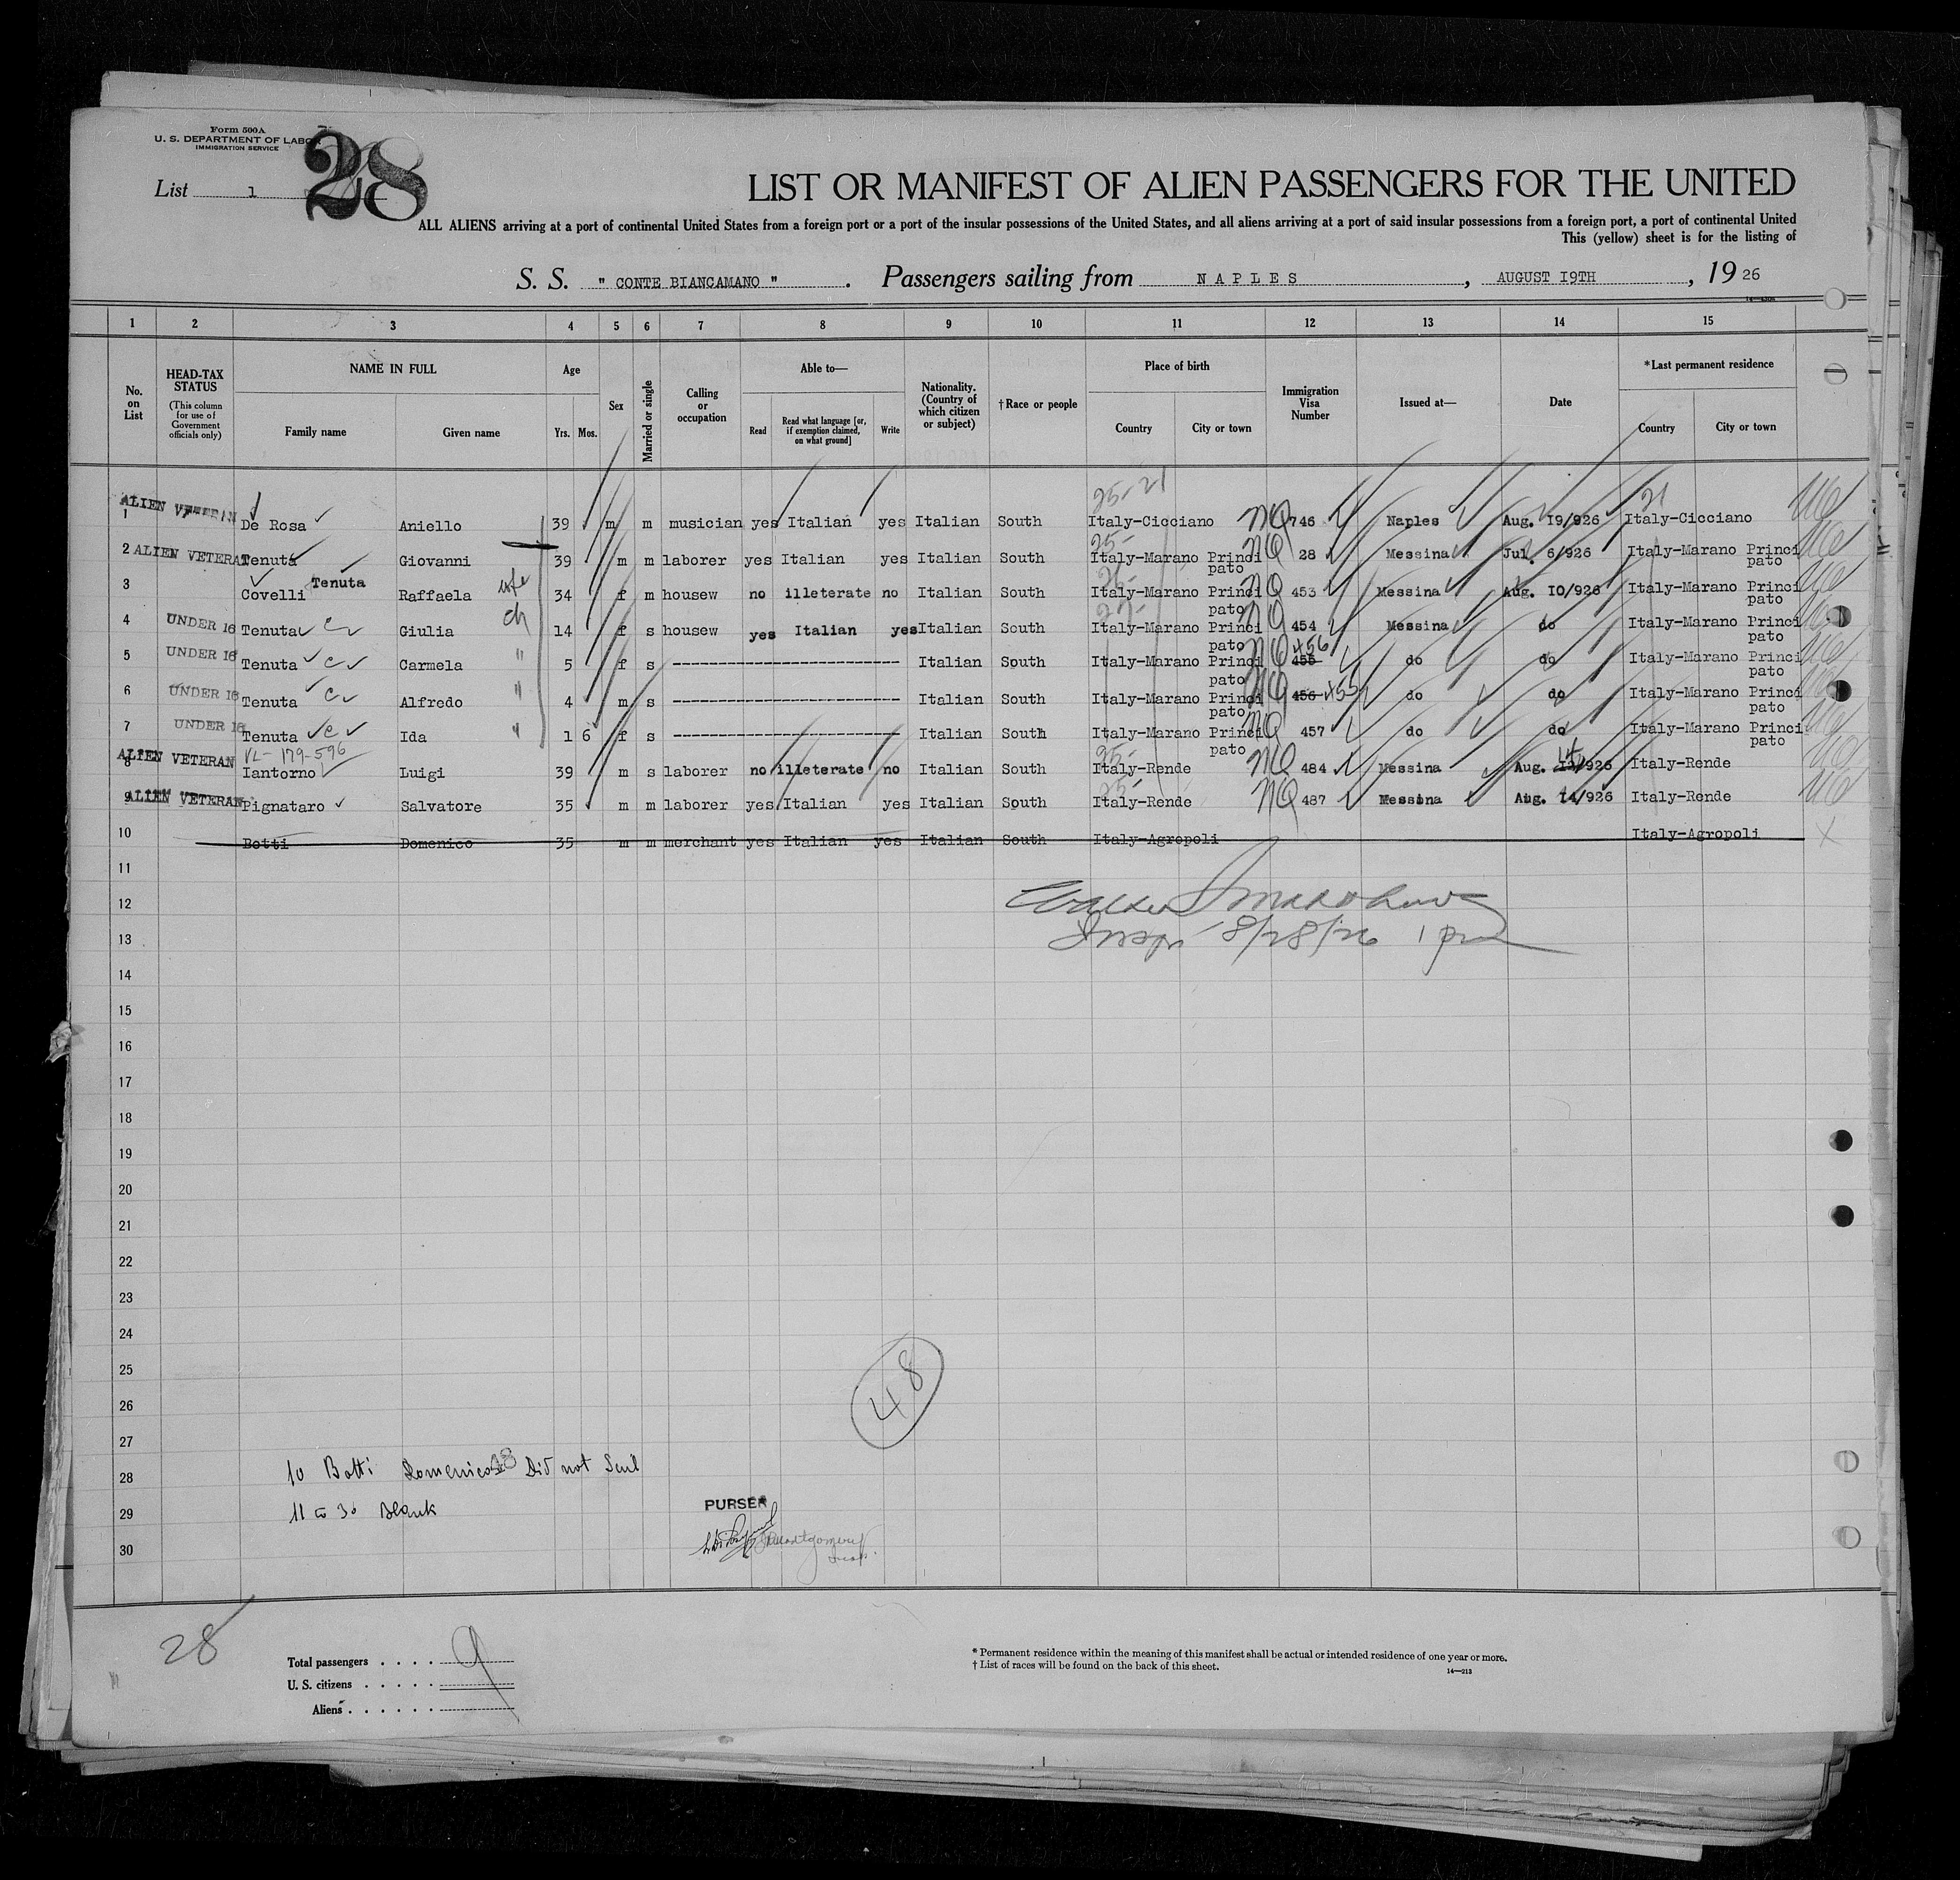 Form 500A
U. S. DEPARTMENT OF LABOR
IMMIGRATION SERVICE
28
List 1
LIST OR MANIFEST OF ALIEN PASSENGERS FOR THE UNITED
ALL ALIENS arriving at a port of continental United States from a foreign port or a port of the insular possessions of the United States, and all aliens arriving at a port of said insular possessions from a foreign port, a port of continental United
This (yellow) sheet is for the listing of
S. S. " CONTE BIANCAMANO " . Passengers sailing from NAPLES , AUGUST I9TH , 19 26
1 2 3 4 5 6 7 8 9 10 11 12 13 14 15
No. on List
HEAD-TAX STATUS (This column for use of Government officials only)
NAME IN FULL
Family name Given name
Age
Yrs. Mos.
Sex
Married or single
Calling or occupation
Able to—
Read Read what language [or, if exemption claimed, on what ground] Write
Nationality. (Country of which citizen or subject)
†Race or people
Place of birth
Country City or town
Immigration Visa Number
Issued at—
Date
*Last permanent residence
Country City or town
25-21 21
1 ALIEN VETERAN De Rosa Aniello 39 m m musician yes Italian yes Italian South Italy-Cicciano NQ 746 Naples Aug. I9/926 Italy-Cicciano
25-
2 ALIEN VETERAN Tenuta Giovanni 39 m m laborer yes Italian yes Italian South Italy-Marano Princi pato NQ 28 Messina Jul. 6/926 Italy-Marano Princi pato
3 Covelli Tenuta Raffaela wife 34 f m housew no illeterate no Italian South Italy-Marano Princi pato NQ 453 Messina Aug. IO/926 Italy-Marano Princi pato
4 UNDER 16 Tenuta Giulia ch 14 f s housew yes Italian yes Italian South Italy-Marano Princi pato NQ 454 Messina do Italy-Marano Princi pato
5 UNDER 16 Tenuta Carmela " 5 f s ---------- Italian South Italy-Marano Princi pato NQ 455 456 do do Italy-Marano Princi pato
6 UNDER 16 Tenuta Alfredo " 4 m s ---------- Italian South Italy-Marano Princi pato NQ 456 455 do do Italy-Marano Princi pato
7 UNDER 16 Tenuta Ida " 1 6 f s ---------- Italian South Italy-Marano Princi pato NQ 457 do do Italy-Marano Princi pato
VL- 179-596
25-
8 ALIEN VETERAN Iantorno Luigi 39 m s laborer no illeterate no Italian South Italy-Rende NQ 484 Messina Aug. 14/926 Italy-Rende
25-
9 ALIEN VETERAN Pignataro Salvatore 35 m m laborer yes Italian yes Italian South Italy-Rende NQ 487 Messina Aug. I4/926 Italy-Rende
10 Botti Domenico 35 m m merchant yes Italian yes Italian South Italy-Agropoli Italy-Agropoli X
11
12 Walter
13 Inspr 8/28/26 1 pm
14
15
16
17
18
19
20
21
22
23
24
25
48
26
27
28 10 Botti Domenico 28 Did not Sail
29 11 to 30 Blank
PURSER
30 Montgomery
28
Total passengers . . . . 9
U. S. citizens . . . . .
Aliens . . . . . .
* Permanent residence within the meaning of this manifest shall be actual or intended residence of one year or more.
† List of races will be found on the back of this sheet.
14—213